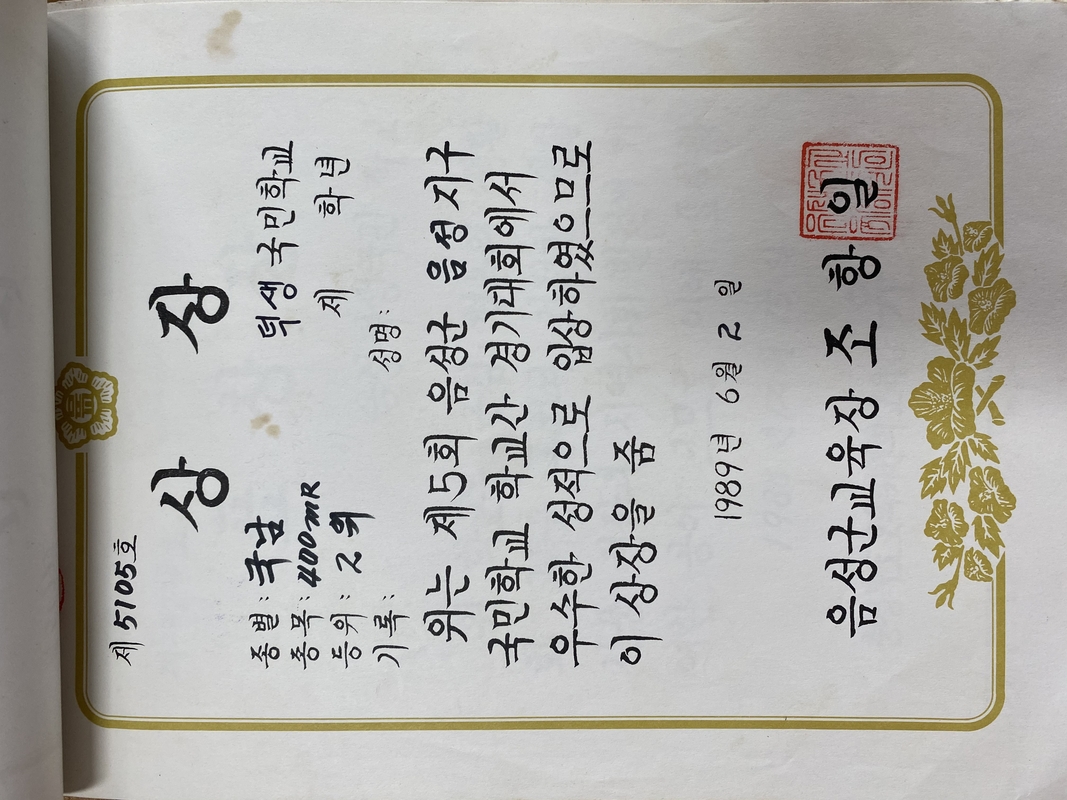 제 5105호
상 장
종별: 국남
종목: 400mR
등위: 2위
기록:
덕생 국민학교
제 학년
성명:
위는 제5회 음성군 음성지구
국민학교 학교간 경기대회에서
우수한 성적으로 입상하였으므로
이 상장을 줌
1989년 6월 2일
음성군교육장 조 항 일